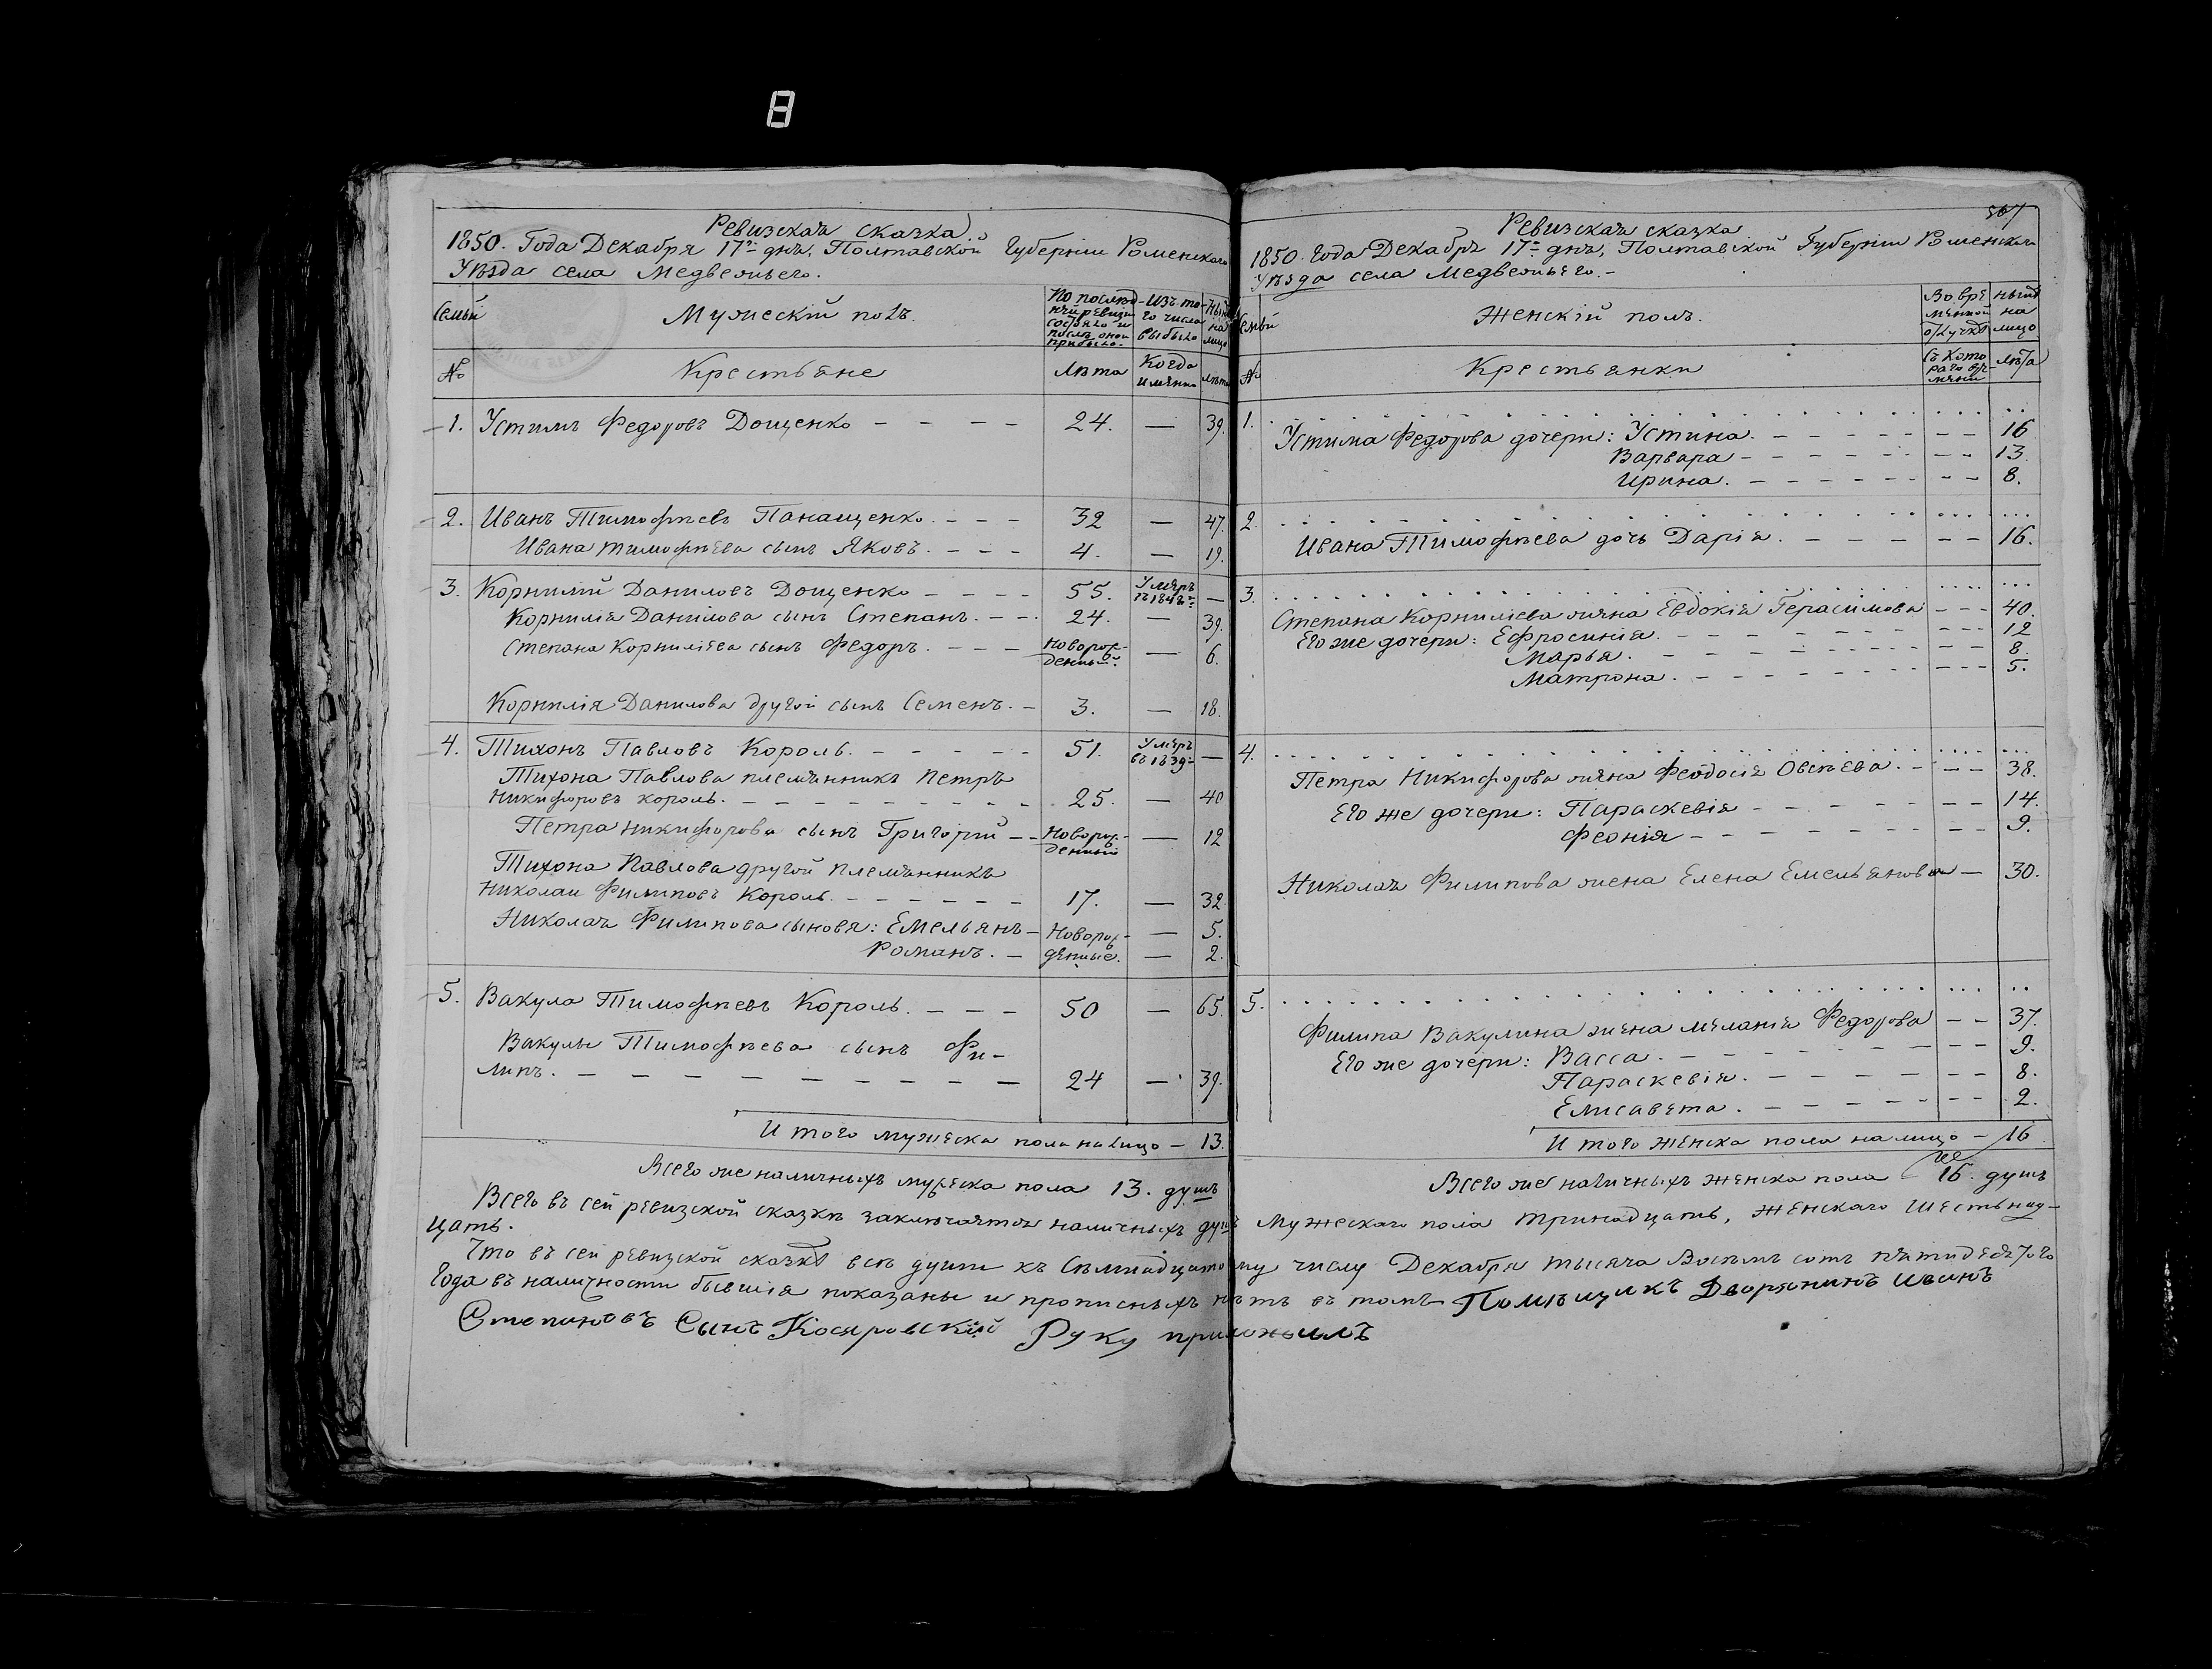 8
Ревизская сказка.
1850. Года Декабря 17го дня, Полтавской Губерніи Роменскаго
Уѣзда села Медвежьего.
Семьи
Мужескій полъ.
По послѣд-
ней ревизіи
состояло и
послѣ оной
прибыло.
Изъ то-
го числа
выбыло
Нынѣ
на
лицо
№
Крестьяне
Лѣта
Когда
именно
Лѣта
1. Устимъ Федоровъ Дощенко - - - - 24. — 39.
2. Иванъ Тимофѣевъ Панащенко. - - - 32 — 47.
Ивана Тимофѣева сынъ Яковъ. - - - 4. — 19.
3. Корнилій Даниловъ Дощенко - - - - 55. Умеръ —
Корнилія Данилова сынъ Степанъ. - - 24. — 39.
Степана Корниліева сынъ Федоръ. - - - Новорож-
денный. — 6.
Корнилія Данилова другой сынъ Семенъ. - 3. — 18.
4. Тихонъ Павловъ Король. - - - - - 51. Умеръ
въ 1839 —
Тихона Павлова племянникъ Петръ
Никифоровъ Король. - - - - - - - - 25. — 40
Петра Никифорова сынъ Григорій - - Новорож-
денный — 12
Тихона Павлова другой племянникъ
Николай Филиповъ Король. - - - - - - 17. — 32
Николая Филипова сыновя: Емельянъ - Новорож- — 5.
Романъ. - денные. — 2.
5. Вакула Тимофѣевъ Король. - - - 50 — 65.
Вакулы Тимофѣева сынъ Фи-
липъ. - - - - - - - - - - 24 — 39.
И того мужеска пола налицо - 13.
Всего же наличныхъ мужеска пола 13. душъ
567
Ревизская сказка
1850. Года Декабря 17го дня, Полтавской Губерніи Роменскаго
Уѣзда села Медвежьего. -
Семьи
Женскій полъ.
Во вре
менной
отлучкѣ
Нынѣ
на
лицо
№
Крестьянки
Съ кото
раго вре-
мени
лѣта
1.
Устима Федорова дочери: Устина. - - - - - - - - 16
Варвара - - - - - - - - 13.
Ирина. - - - - - - - - 8.
2.
Ивана Тимофѣева дочь Дарія. - - - - - - 16.
3.
Степана Корниліева жена Евдокія Герасимова - - - 40.
Его же дочери: Ефросинія. - - - - - - - - - 12
Марья. - - - - - - - - 8.
Матрона. - - - - - - - - - 5.
4.
Петра Никифорова жена Феодосія Овсѣева. - - - - 38.
Его же дочери: Параскевія - - - - - - - - 14.
Феонія - - - - - - - - - 9.
Николая Филипова жена Елена Емельянова - 30.
5.
Филипа Вакулина жена Меланія Федорова - - 37.
Его же дочери: Васса. - - - - - - - - - 9.
Параскевія. - - - - - - - 8.
Елисавета. - - - - - - - 2.
И того женска пола налицо - 16
Всего же наличныхъ женска пола 16. душъ
Всего въ сей ревизской сказкѣ заключается наличныхъ душъ Мужескаго пола тринадцать, женскаго шестьнад-
цать.
Что въ сей ревизской сказкѣ всѣ души къ Семнадцатому числу Декабря тысяча Восемь сотъ пятидесятого
Года въ наличности бывшія показаны и прописныхъ нѣтъ въ томъ Помѣщикъ Дворянинъ Иванъ
Степановъ Сынъ Косяровскій Руку приложилъ